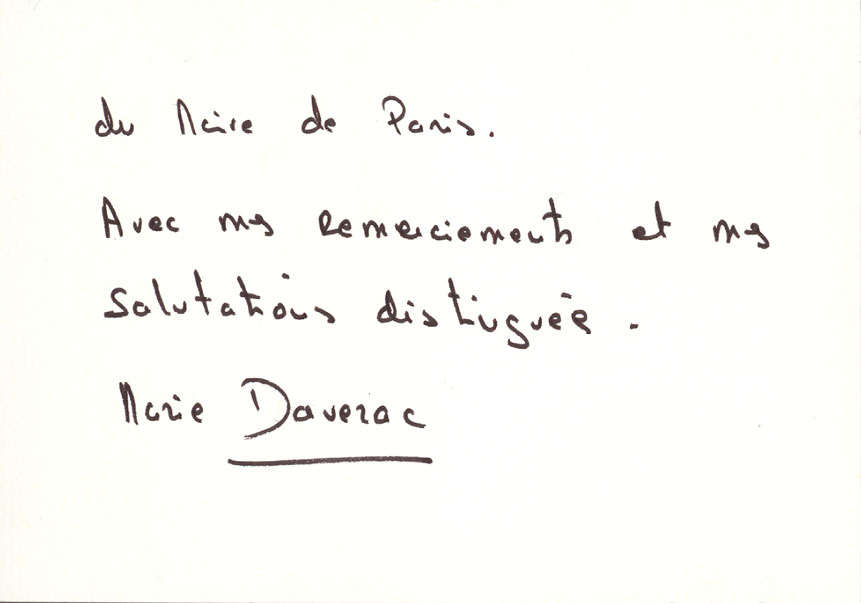 du Maire de Paris.
Avec mes remerciements et mes
salutations distinguée .
Marie Daverac